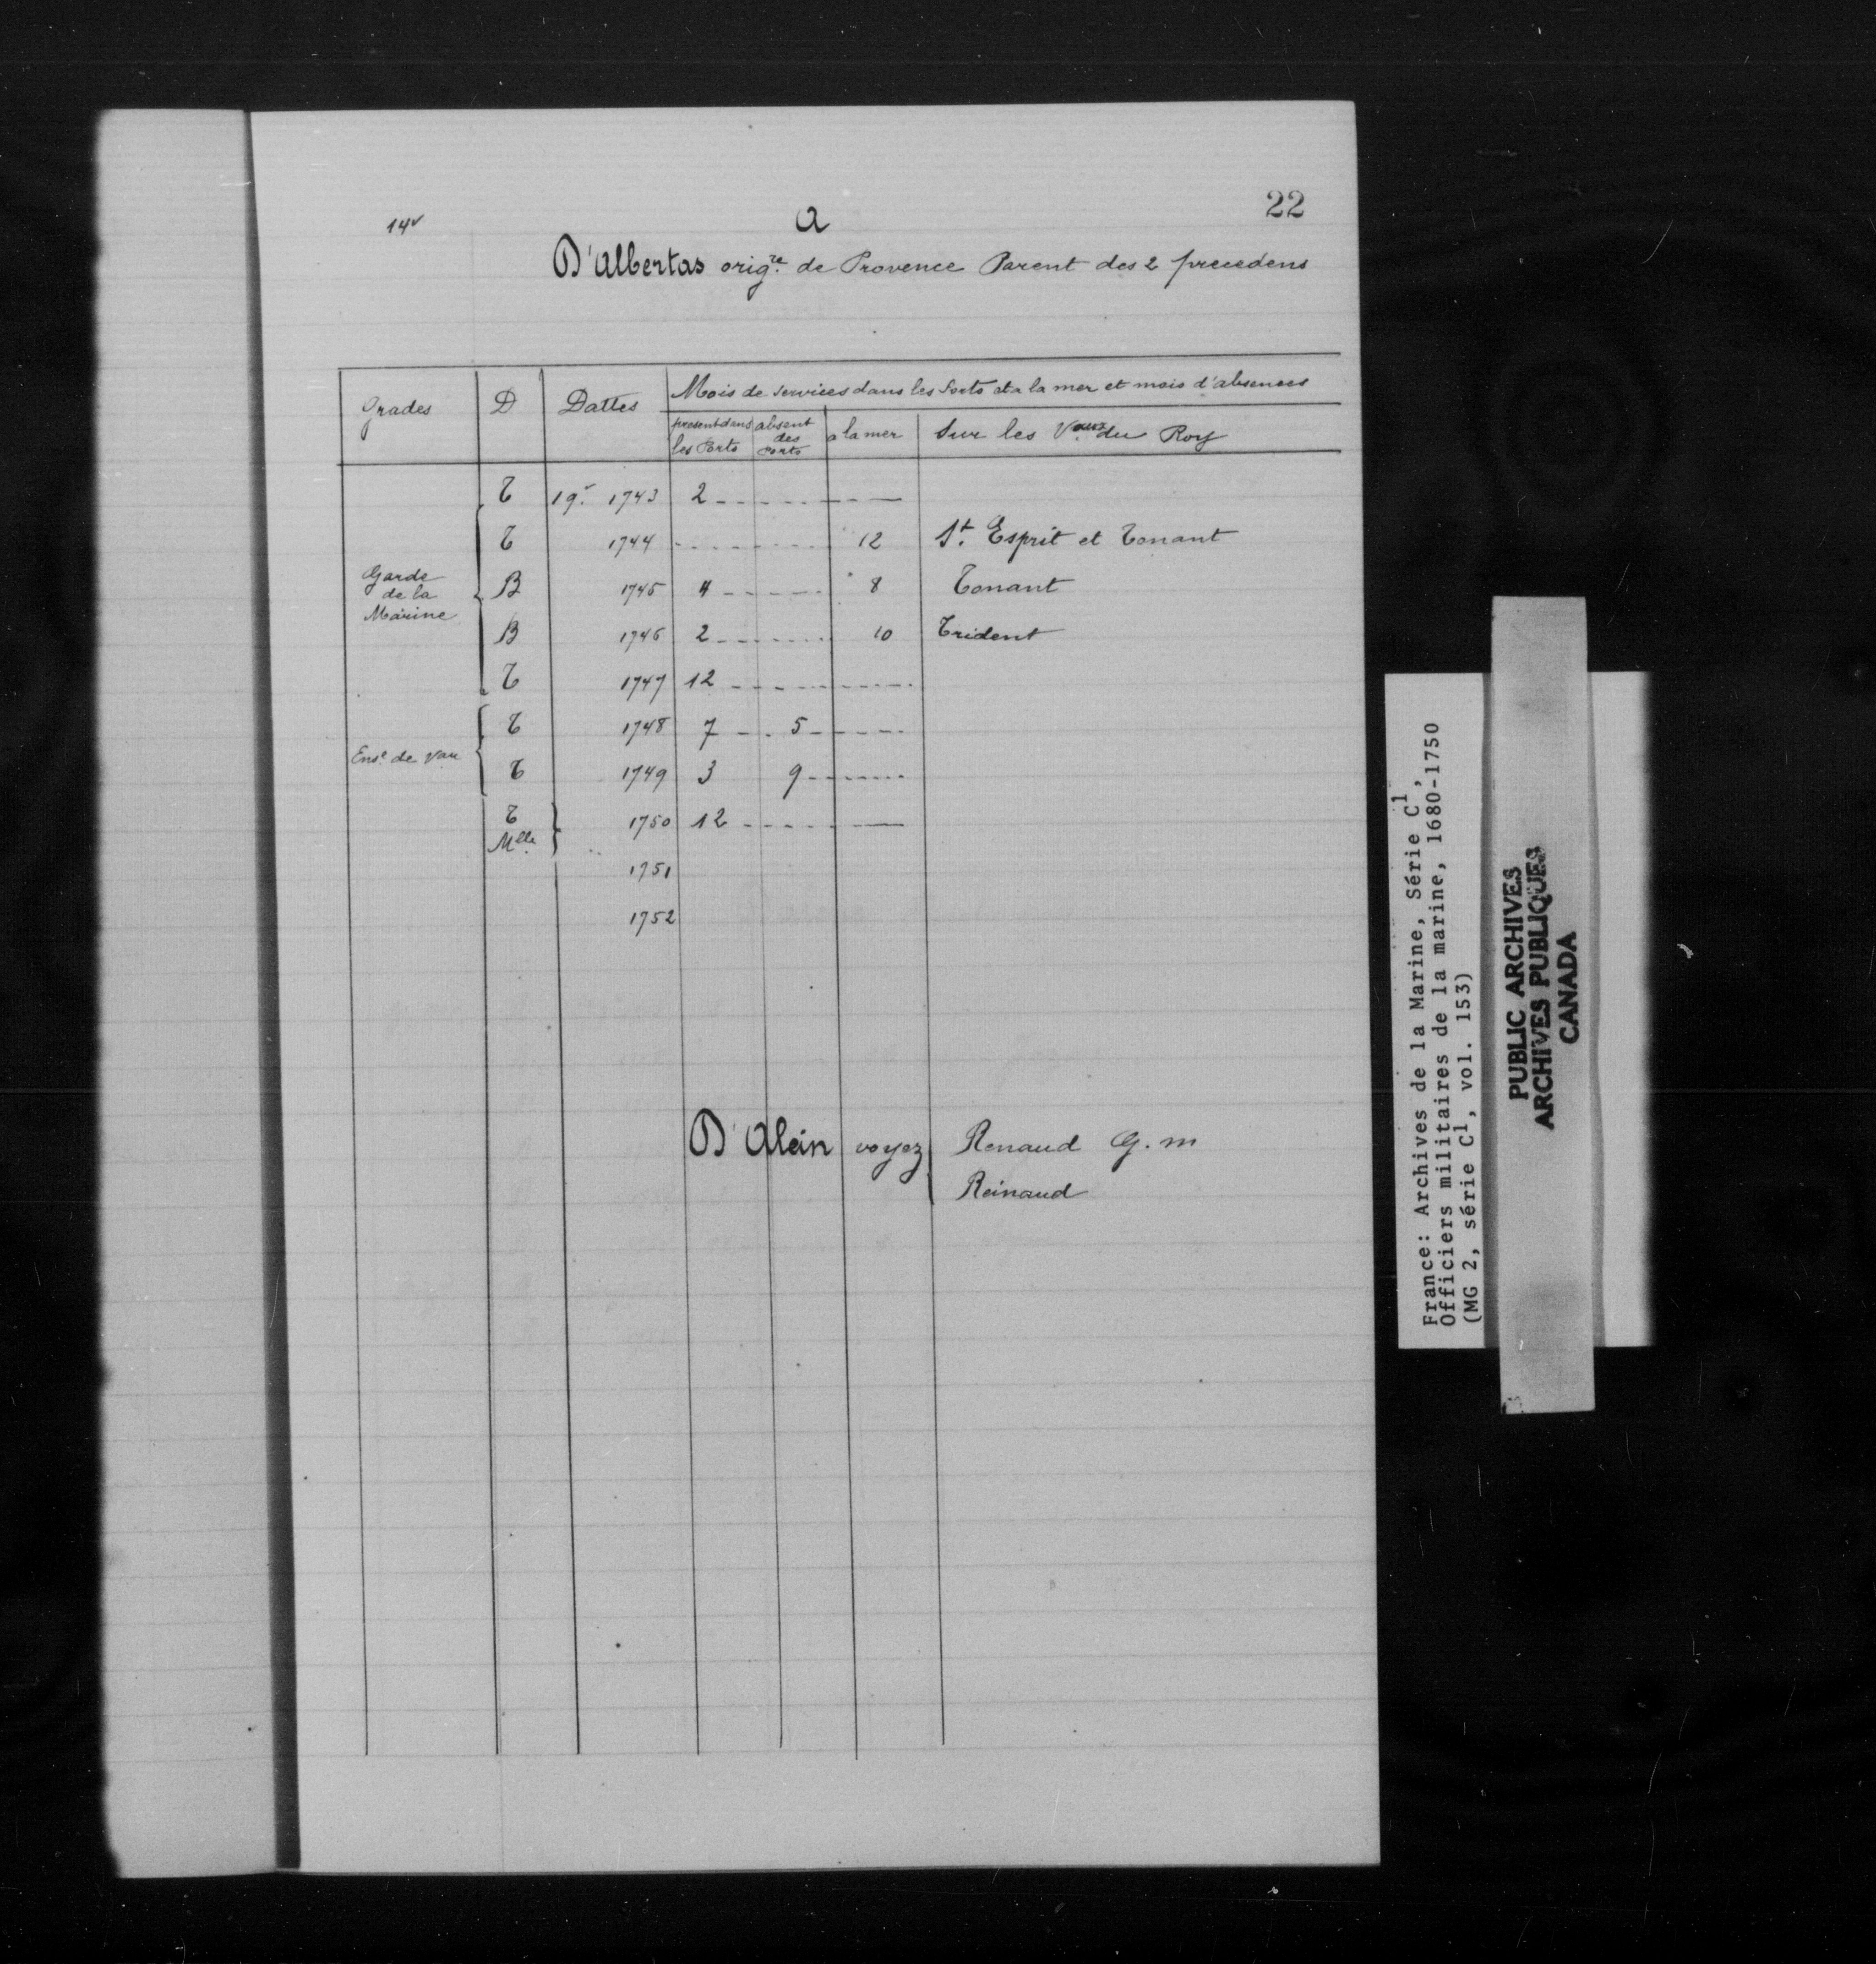 22
14v
a
D'Albertas orig.re de Provence Parent des 2 precedens
Grades D Dattes Mois de services dans les Ports et a la mer et mois d'absences
present dans les Ports absent des Ports a la mer Sur les Vaux du Roy
T 1 9.r 1743 2
T 1744 12 St. Esprit et Tonant
Garde de la Marine B 1745 4 8 Tonant
B 1746 2 10 Trident
T 1747 12
T 1748 7 5
Ens.e de Vau T 1749 3 9
T 1750 12
Mlle
1751
1752
D'Alein voyez Renaud G. m
Reinaud
France: Archives de la Marine, Série C1,
Officiers militaires de la marine, 1680-1750
(MG 2, série C1, vol. 153)
PUBLIC ARCHIVES
ARCHIVES PUBLIQUES
CANADA